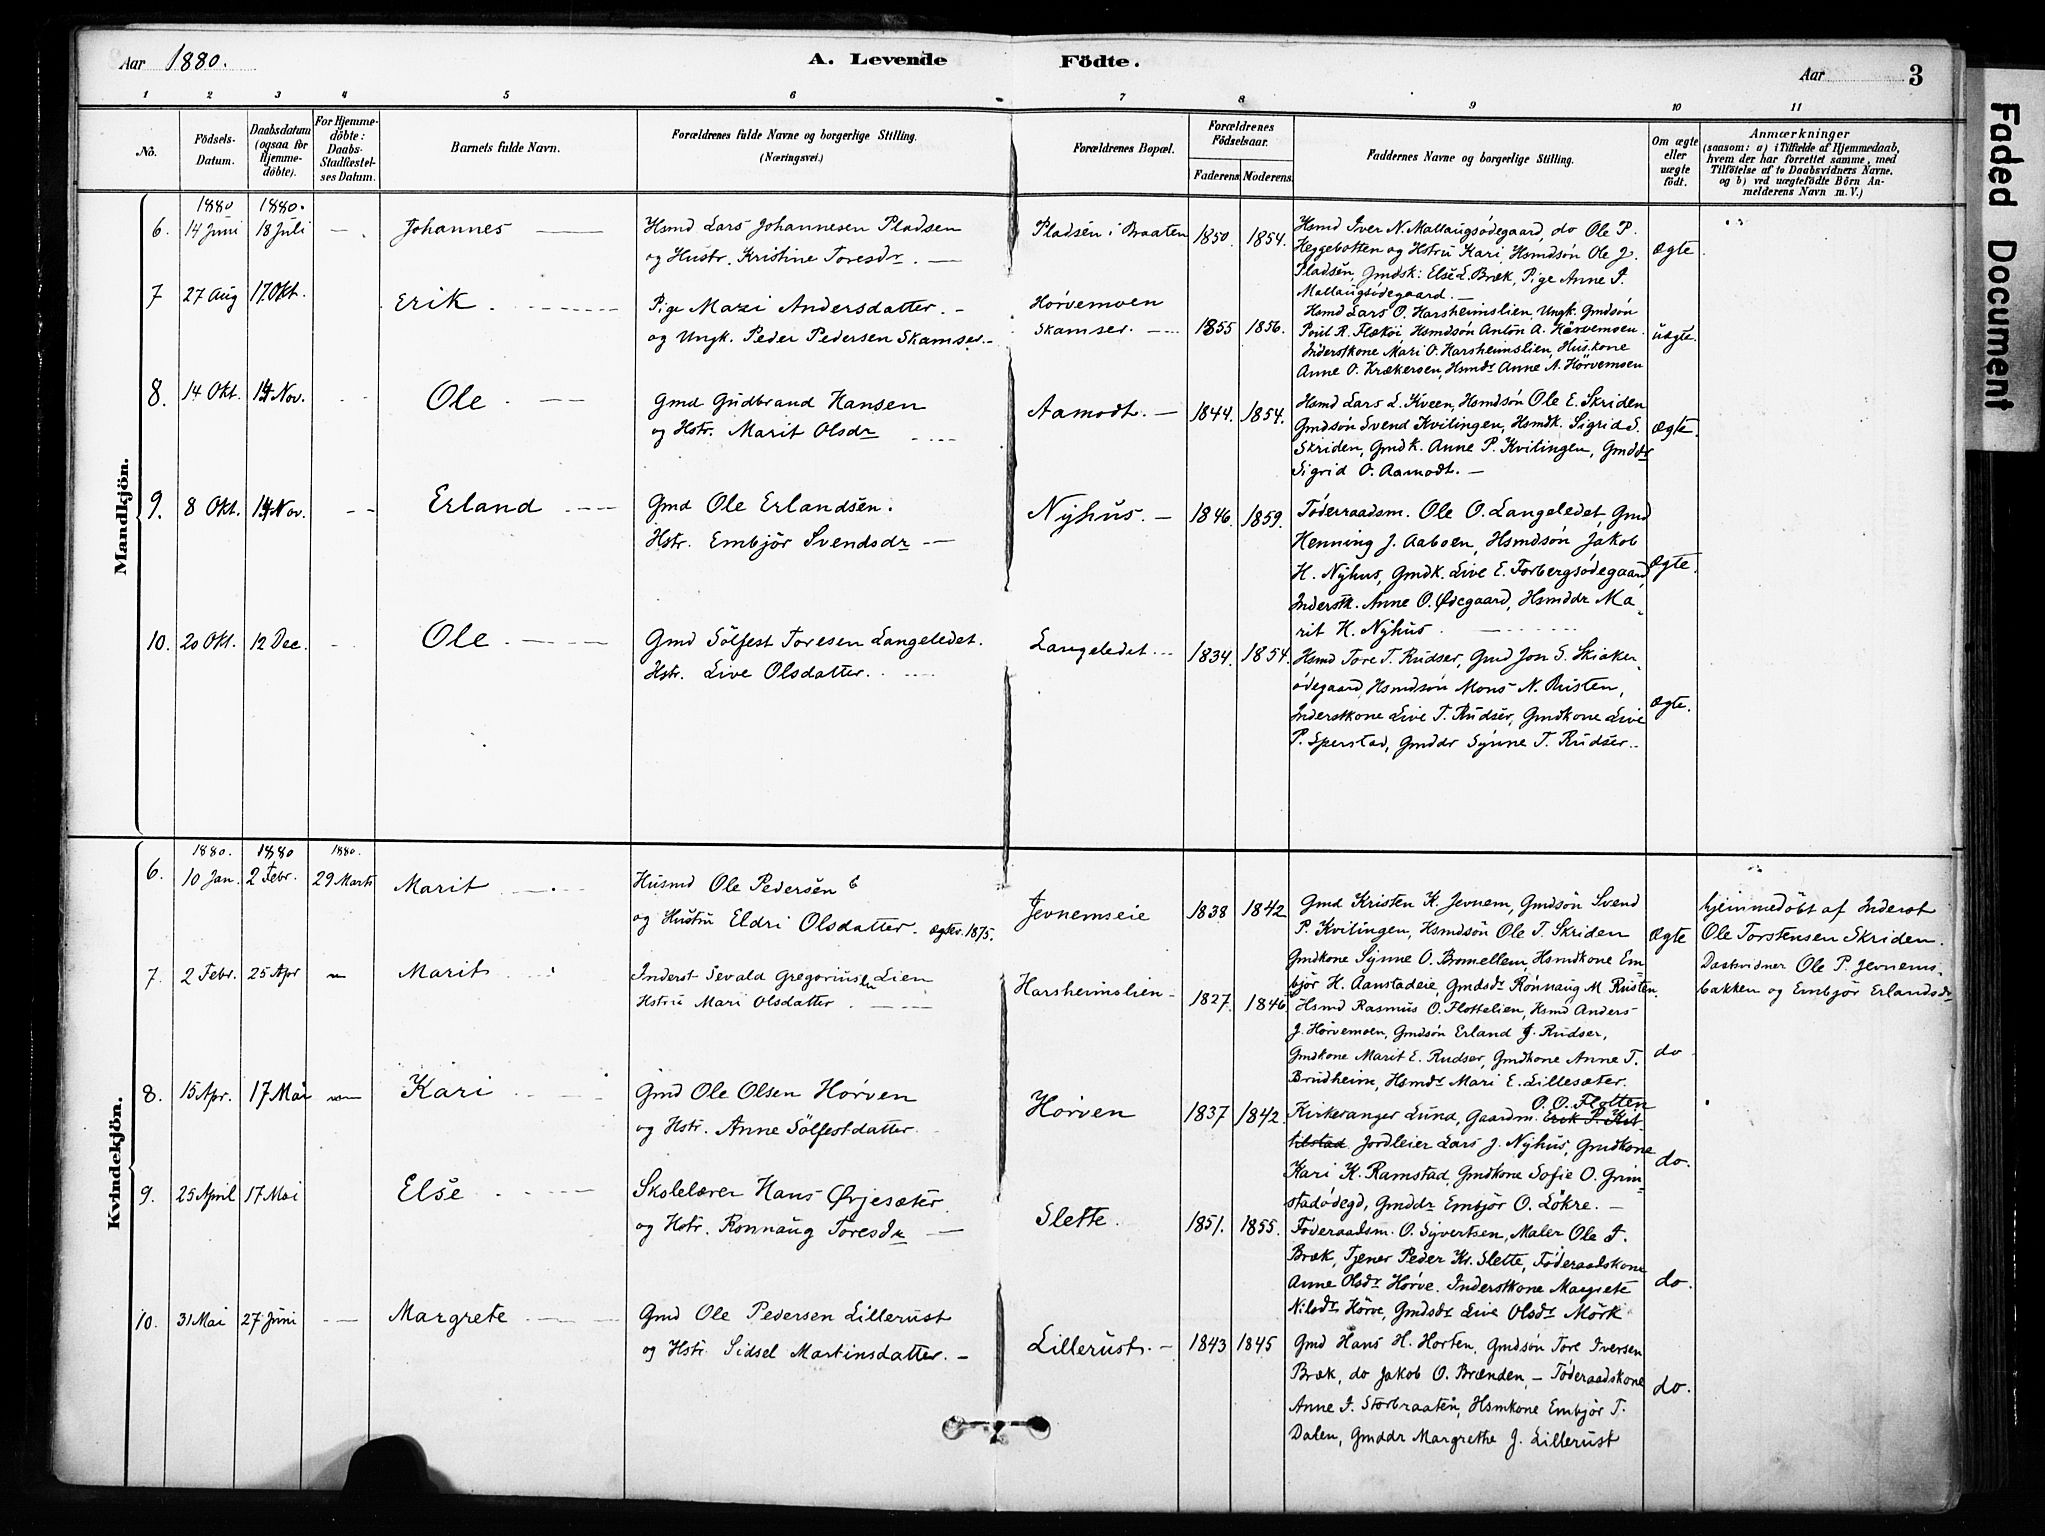 Aar 1880.
A. Levende Födte.
Aar
3
1 2 3 4 5 6 7 8 9 10 11
No.
Födsels-Datum.
Daabsdatum (ogsaa for Hjemme-döbte).
For Hjemme-döbte: Daabs-Stadfæstel-ses Datum.
Barnets fulde Navn.
Forældrenes fulde Navne og borgerlige Stilling. (Næringsvei.)
Forældrenes Bopæl.
Forældrenes Födselsaar.
Faderens. Moderens.
Faddernes Navne og borgerlige Stilling.
Om ægte eller uægte födt.
Anmærkninger (saasom: a) i Tilfælde af Hjemmedaab, hvem der har forrettet samme, med Tilföielse af to Daabsvidners Navne, og b) ved uægtefödte Börn An-melderens Navn m. V.)
Faded Document
Mandkjön.
1880 1880.
6. 14 Juni 18 Juli Johannes
Hsmd Lars Johannesen Pladsen
og Hustr. Kristine Toresdr.
Pladsen i Braaten 1850. 1854.
Hsmd Iver N. Mallaugsödegaard, do Ole P.
Heggebotten og Hstru Kari, Hsmdsön Ole J.
Pladsen, Gmdsk: Else L. Bræk, Pige Anne I.
Mallaugsödegaard.
ægte.
7 27 Aug 17 Okt. Erik
Pige Mari Andersdatter.
og Ungk. Peder Pedersen Skamser.
Hörvemoen
Skamser. 1855 1856.
Hsmd Lars O. Harsheimslien, Ungk. Gmdsön
Poul R. Flæköi Hsmdsön Anton A. Hörvemoen.
Inderstkone Mari O. Harsheimslien, Huskone
Anne O. Krækersen, Hsmdr Anne A. Hörvemoen
uægte.
8. 14 Okt. 14 Nov. Ole
Gmd Gudbrand Hansen
og Hstr. Marit Olsdr
Aamodt. 1844. 1854.
Hsmd Lars L. Kveen, Hsmdsön Ole E. Skriden
Gmdsön Svend Kvilingen, Hsmdk. Sigrid S.
Skriden, Gmdk. Anne P. Kvilingen, Gmddr
Sigrid O. Aamodt.
ægte.
9. 8 Okt. 14 Nov. Erland
Gmd Ole Erlandsen.
Hstr. Embjör Svendsdr
Nyhus. 1846. 1859.
Föderraadsm. Ole O. Langeledet, Gmd
Henning J. Aaboen, Hsmdsön Jakob
H. Nyhus, Gmdk. Live E. Forbergsödegaard
Inderstk. Anne O. Ødegaard, Hsmddr Ma-
rit H. Nyhus.
Ægte.
10. 20 Okt. 12 Dec. Ole
Gmd Sölfest Toresen Langeledet.
Hstr. Live Olsdatter.
Langeledet 1834. 1854.
Hsmd Tore T. Rudser, Gmd Jon S. Skiaker-
ödegaard, Hsmdsön Mons N. Rusten,
Inderstkone Live T. Rudser, Gmdkone Live
P. Sperstad, Gmddr Synne T. Rudser.
Ægte.
Kvindekjön.
1880. 1880 1880.
6. 10 Jan. 2 Febr. 29 Marts Marit
Husmd Ole Pedersen
og Hustru Eldri Olsdatter. ægtev. 1875.
Jevnemseie 1838 1842
Gmd Kristen K. Jevnem, Gmdsön Svend
P. Kvilingen, Hsmdsön Ole T. Skriden
Gmdkone Synne O. Bromellem, Hsmdkone Em-
björ H. Aanstadeie, Gmdsdr Rönnaug M. Rusten.
Ægte
hjemmedöbt af Inderst
Ole Torstensen Skriden.
Daabsvidner Ole P. Jevnems-
bakken og Embjör Erlandsdr
7. 2 Febr. 25 Apr Marit
Inderst Sevald Gregoriusen Lien
Hstru Mari Olsdatter
Harsheimslien 1827. 1846
Hsmd Rasmus O. Flottelien, Hsmd Anders
J. Hörvemoen, Gmdsön Erland J. Rudser,
Gmdkone Marit E. Rudser, Gmdkone Anne T.
Brudheim, Hsmdr Mari E. Lillesæter.
do
8. 15 Apr. 17 Mai Kari
Gmd Ole Olsen Hörven
og Hstr. Anne Sölfestdatter
Hörven 1837 1842
O. O. Flotten
Kirkesanger Lund, Gaardm. Erik P. Kit-
tilstad Jordleier Lars J. Nyhus, Gmdkone
Kari K. Ramstad, Gmdkone Sofie O. Grim-
stadödegd, Gmddr Embjör O. Lökre.
do.
9. 25 April 17 Mai Else
Skolelærer Hans Øvjesæter
og Hstr. Ronnaug Toresdr
Slette. 1851. 1855.
Föderaadsm. O. Syvertsen, Maler Ole I.
Bræk, Tjener Peder Kr. Slette, Föderaadskone
Anne Olsdr Hörve. Inderstkone Margrete
Nilsdr Hörve, Gmdsdr Live Olsdr Mörk
do.
10. 31 Mai 27 Juni Margrete
Gmd Ole Pedersen Lillerust
og Hstr. Sidsel Martinsdatter.
Lillerust. 1843 1845
Gmd Hans H. Horten, Gmdsön Tore Iversen
Bræk, do Jakob O. Brænden, Föderaadskone
Anne I. Storbraaten, Hsmkone Embjör T.
Dalen, Gmddr Margrethe J. Lillerust
do.